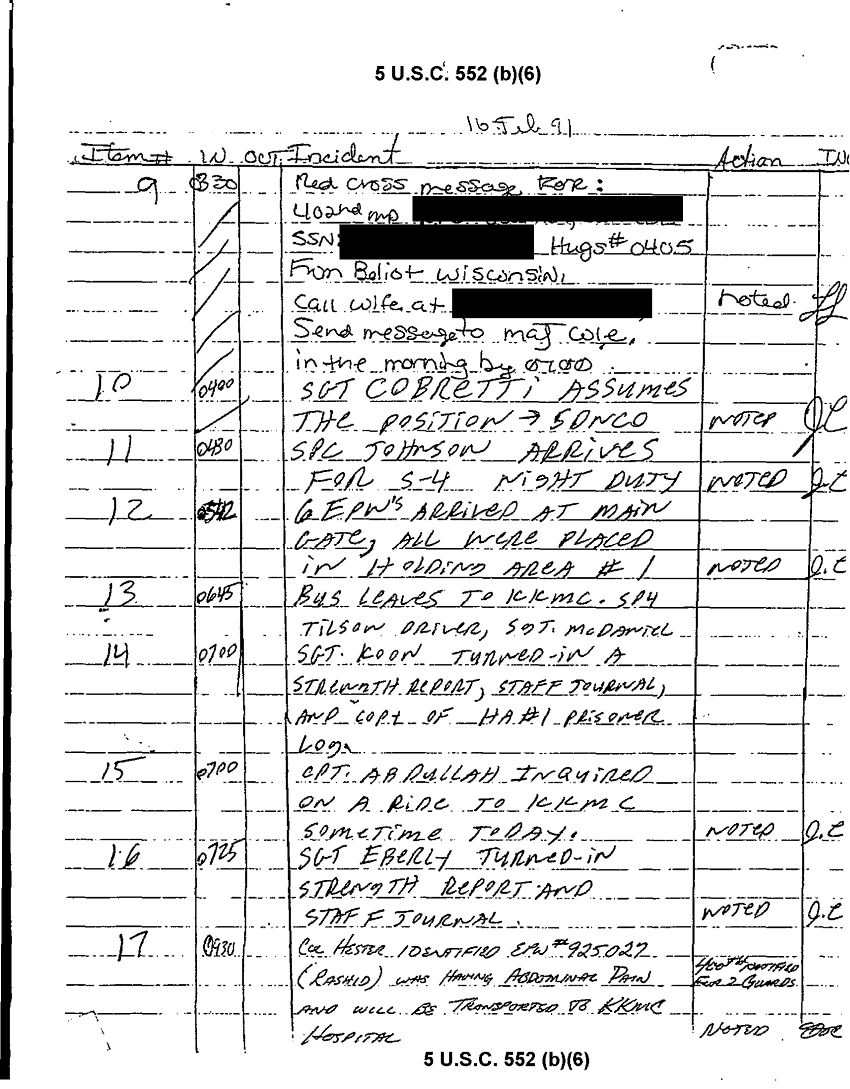 5 U.S.C. 552 (b)(6)
16 Feb 91
Item # IN OUT Incident Action INI
9 0330 Red Cross message FOR:
402nd MP
SSN: Hugs# 0405
From Beliot Wisconsin,
Call wife at noted
Send message to maj Cole,
in the morning by 0700.
10 0400 SGT COBRETTI ASSUMES
THE POSITION → SDNCO NOTED JC
11 0430 SPC JOHNSON ARRIVES
FOR S-4 NIGHT DUTY NOTED J.C
12 0542 6 EPW'S ARRIVED AT MAIN
GATE, ALL WERE PLACED
IN HOLDING AREA # 1 NOTED J.C
13 0645 BUS LEAVES TO KKMC. SP4
TILSON DRIVER, SGT. McDANIEL
14 0700 SGT. KOON TURNED-IN A
STRENGTH REPORT, STAFF JOURNAL,
AND COPY OF HA#1 PRISONER
LOG.
15 0700 CPT. ABDULLAH INQUIRED
ON A RIDE TO KKMC
SOMETIME TODAY. NOTED J.C
16 0725 SGT EBERLY TURNED-IN
STRENGTH REPORT AND
STAFF JOURNAL. NOTED J.C
17 0930 COL HESTER IDENTIFIED EPW #925027
(RASHID) WAS HAVING ABDOMINAL PAIN 400TH NOTIFIED
FOR 2 GUARDS.
AND WILL BE TRANSPORTED TO KKMC
HOSPITAL NOTED
5 U.S.C. 552 (b)(6)